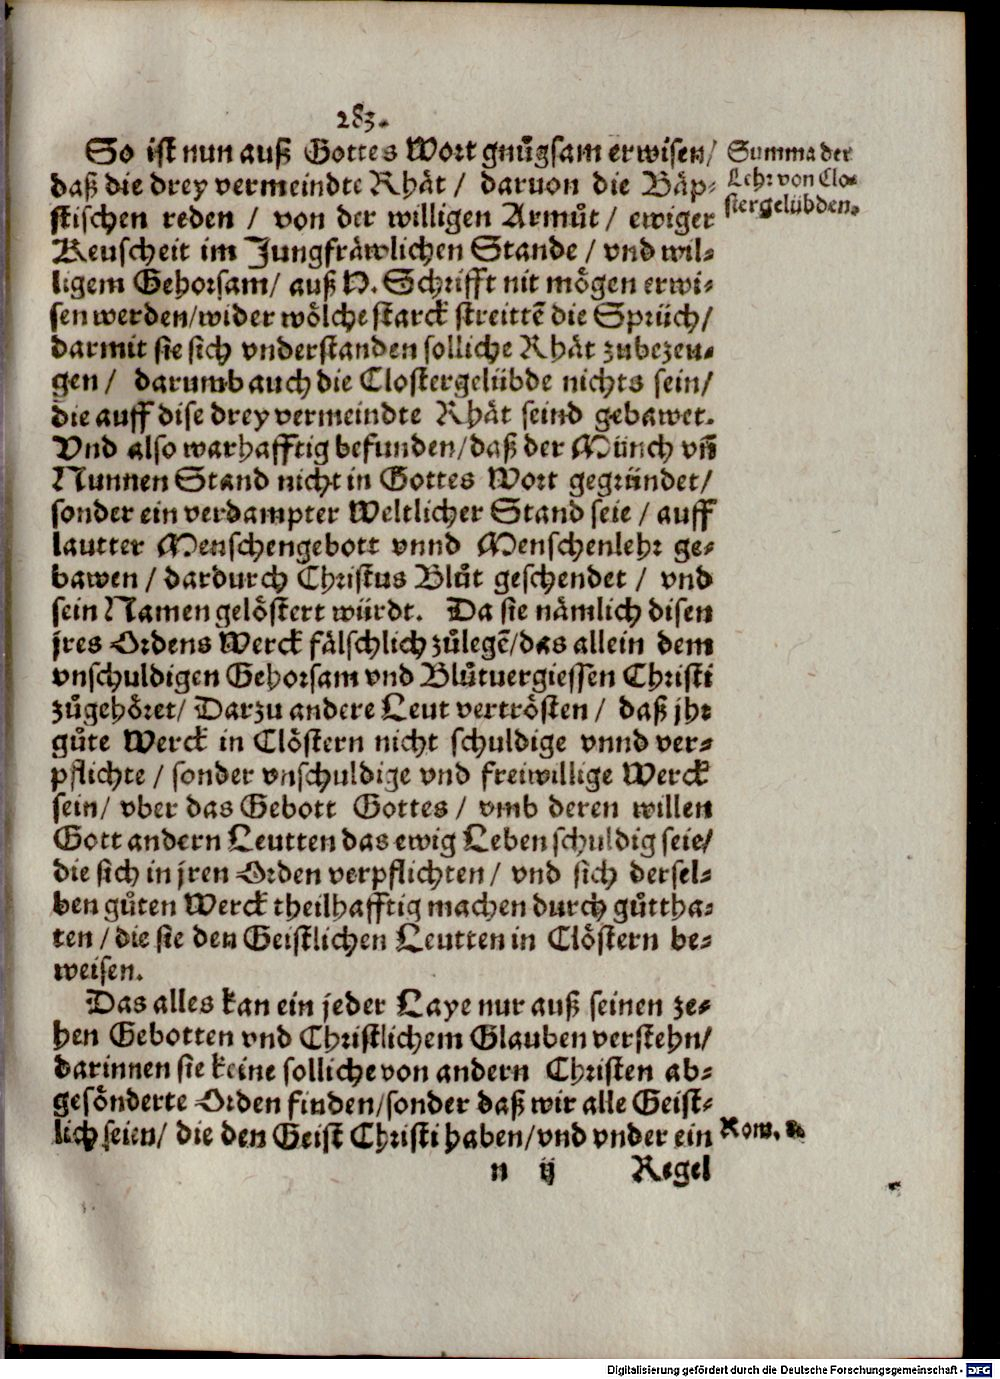 283.
So ist nun auß Gottes Wort gnůgsam erwisen/
daß die drey vermeindte Rhät / daruon die Bäp-
stischen reden / von der willigen Armůt / ewiger
Keuscheit im Jungfräwlichen Stande / vnd wil-
ligem Gehorsam/ auß H. Schrifft nit mögen erwi-
sen werden/wider wölche starck streittẽ die Sprüch/
darmit sie sich vnderstanden solliche Rhät zubezeu-
gen / darumb auch die Clostergelübde nichts sein/
die auff dise drey vermeindte Rhät seind gebawet.
Vnd also warhafftig befunden/daß der Münch vñ
Nunnen Stand nicht in Gottes Wort gegründet/
sonder ein verdampter Weltlicher Stand seie / auff
lautter Menschengebott vnnd Menschenlehr ge-
bawen / dardurch Christus Blůt geschendet / vnd
sein Namen gelöstert würdt. Da sie nämlich disen
jres Ordens Werck fälschlich zůlegẽ/das allein dem
vnschuldigen Gehorsam vnd Blůtuergiessen Christi
zůgehöret/ Darzu andere Leut vertrösten / daß jhr
gůte Werck in Clöstern nicht schuldige vnnd ver-
pflichte / sonder vnschuldige vnd freiwillige Werck
sein/ vber das Gebott Gottes / vmb deren willen
Gott andern Leutten das ewig Leben schuldig seie/
die sich in jren Orden verpflichten / vnd sich dersel-
ben gůten Werck theilhafftig machen durch gůttha-
ten / die sie den Geistlichen Leutten in Clöstern be-
weisen.
Das alles kan ein jeder Laye nur auß seinen ze-
hen Gebotten vnd Christlichem Glauben verstehn/
darinnen sie keine solliche von andern Christen ab-
gesönderte Orden finden/sonder daß wir alle Geist-
lich seien/ die den Geist Christi haben/vnd vnder ein
n ij Regel
Summa der
Lehr von Clo-
stergelübden.
Rom. 8
Digitalisierung gefördert durch die Deutsche Forschungsgemeinschaft - DFG